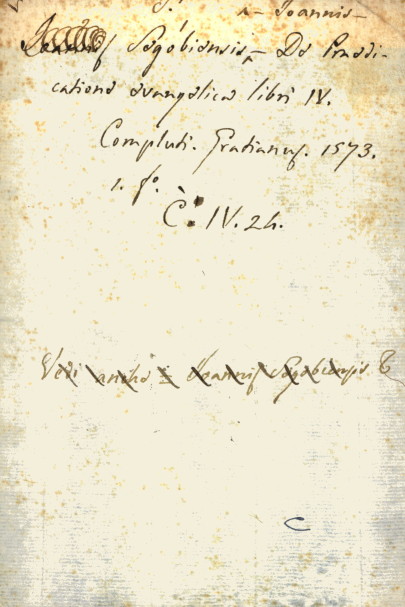 a- Joannis-
Segobiensis- De Praedi-
catione evangelica libri IV.
Compluti. Gratianus. 1573.
1. fo.
C. IV. 24.
Vedi anche = Joannis Segobiensis